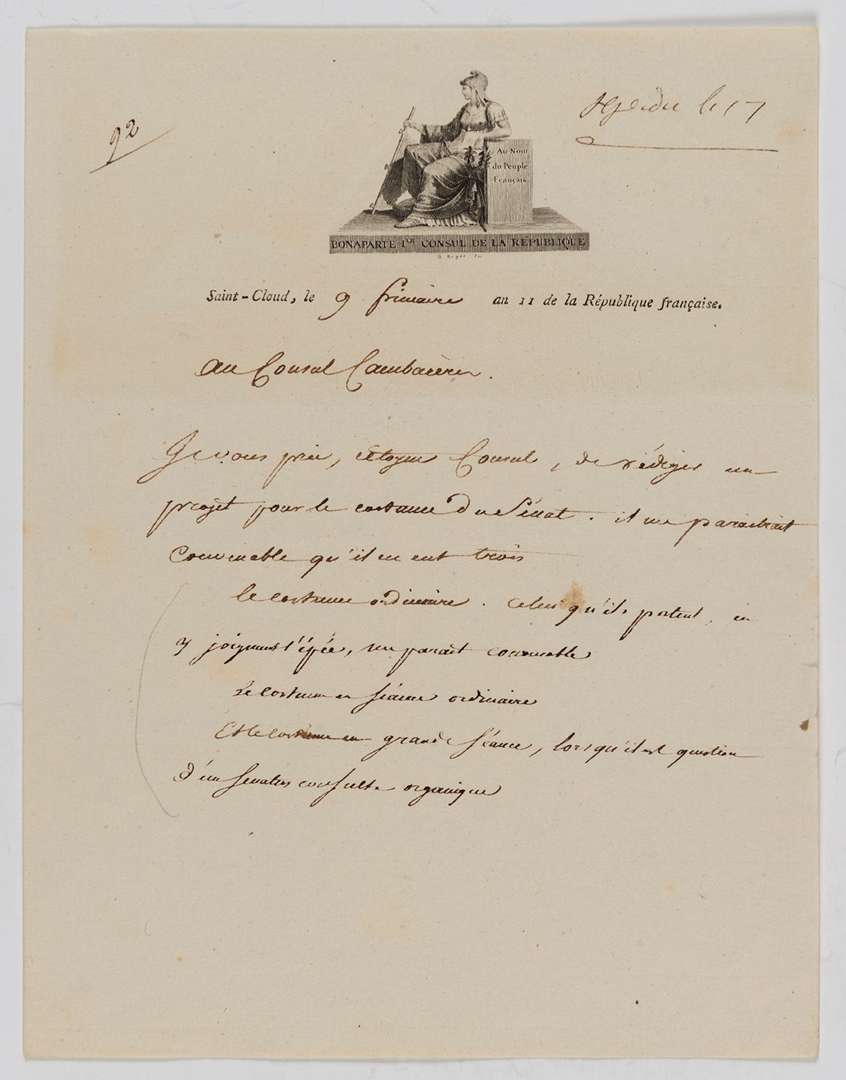 92
Au Nom
du Peuple
Français.
BONAPARTE 1er CONSUL DE LA RÉPUBLIQUE
Saint-Cloud, le 9 frimaire an 11 de la République française.
au Consul Cambacérès.
Je vous prie, citoyen Consul, de rédiger un
projet pour le costume du Sénat. il me paraitrait
convenable qu'il en eut trois
le costume ordinaire. celui qu'ils portent, en
y joignant l'épée, me parait convenable
Le costume en séance ordinaire
Et le costume en grande séance, lorsqu'il est question
d'un senatus consulte organique